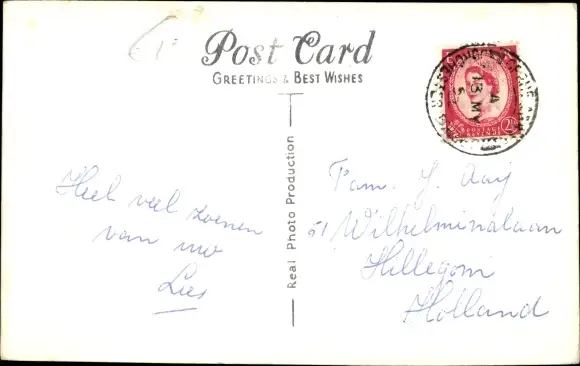 Post Card
GREETINGS & BEST WISHES
Real Photo Production
Heel veel zoenen
van uw
Lies
Fam. J. Aaij
51 Wilhelminalaan
Hillegom
Holland
POSTAGE
REVENUE
2½
A
13 MY